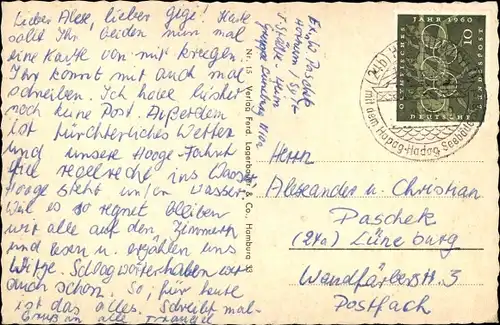 Lieber Alex, lieber Gigi! Heute
sollt Ihr beiden nun mal
eine Karte von mir kriegen.
Ihr könnt mir auch mal
schreiben. Ich habe bisher
noch keine Post. Außerdem
ist fürchterliches Wetter
und unsere Hooge-Fahrt
fiel regelrecht ins Wasser.
Hooge steht unter Wasser.
Weil es so regnet bleiben
wir alle auf den Zimmern
und lesen u. erzählen uns
Witze. Schlagwörter haben wir
auch schon. So, für heute
ist das alles. Schreibt mal
Gruß an alle
Paschek
Hörnum / Sylt
gruppe Lüneburg
Nr. 15 Verlag Ferd. Lagerbauer & Co., Hamburg
OLYMPISCHES JAHR 1960
10
DEUTSCHE BUNDESPOST
(24b)
mit den Hapag-Hadag Seebäder
Herrn
Alexander u. Christian
Paschek
(24a) Lüneburg
Wandfärberstr. 3
Postfach